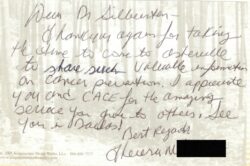 Dear Dr Silberstein
Thank you again for taking
the time to come to asheville
to share such valuable information
on cancer prevention. I appreciate
you and CACE for the amazing
service you give to others. See
you in Dallas!
Best Regards
Theresa M